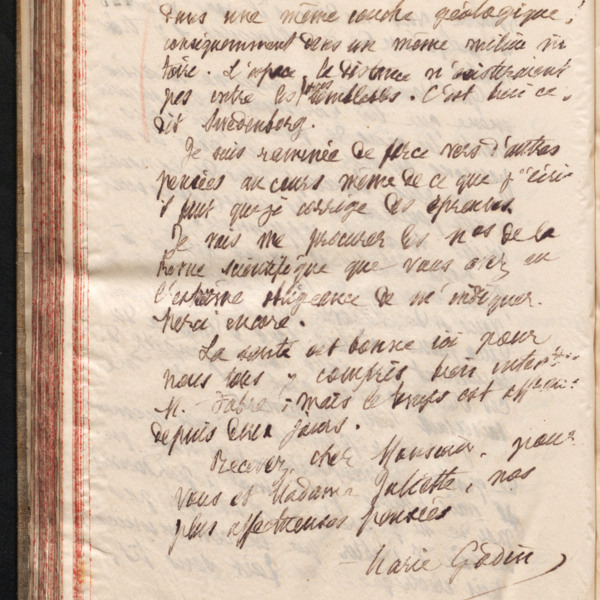 dans une même couche géologique,
conséquemment dans un même milieu
. L'espace, la distance n'existeraient
pas entre les semblables. C'est bien ce
dit Swedenborg.
Je suis ramenée de force vers d'autres
pensées au cours même de ce que j'écris
il faut que je corrige des épreuves.
Je vais me procurer les nos de la
Revue scientifique que vous avez eu
l'extrême obligeance de m'indiquer.
Merci encore.
La santé est bonne ici pour
nous tous y compris bien
M. Fabre ; mais le temps est
depuis deux jours.
Recevez, cher Monsieur, pour
vous et Madame Juliette, nos
plus affectueuses pensées
Marie Godin